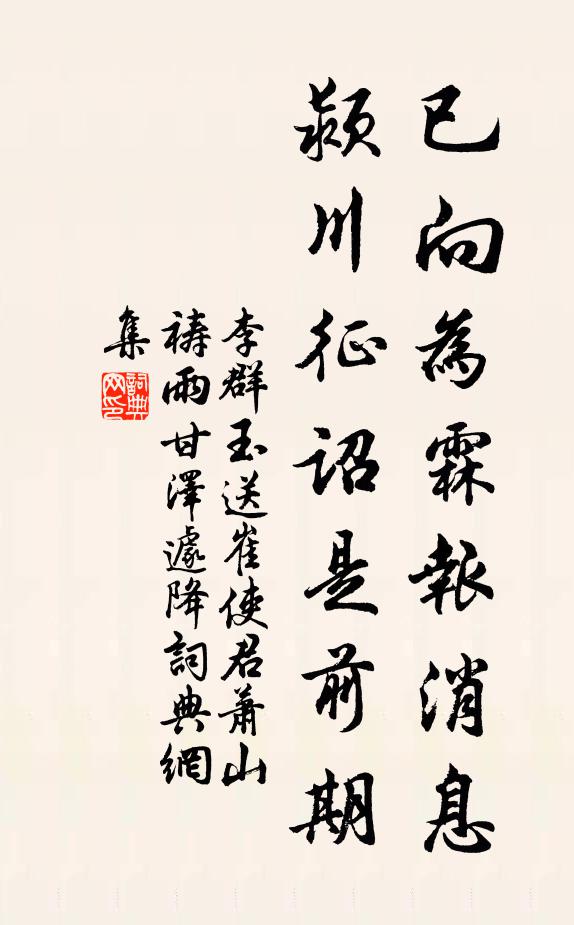 已向為霖報消息
潁川征詔是前期
李群玉送崔使君蕭山
禱雨甘澤遽降詞典網
集
詞典網印